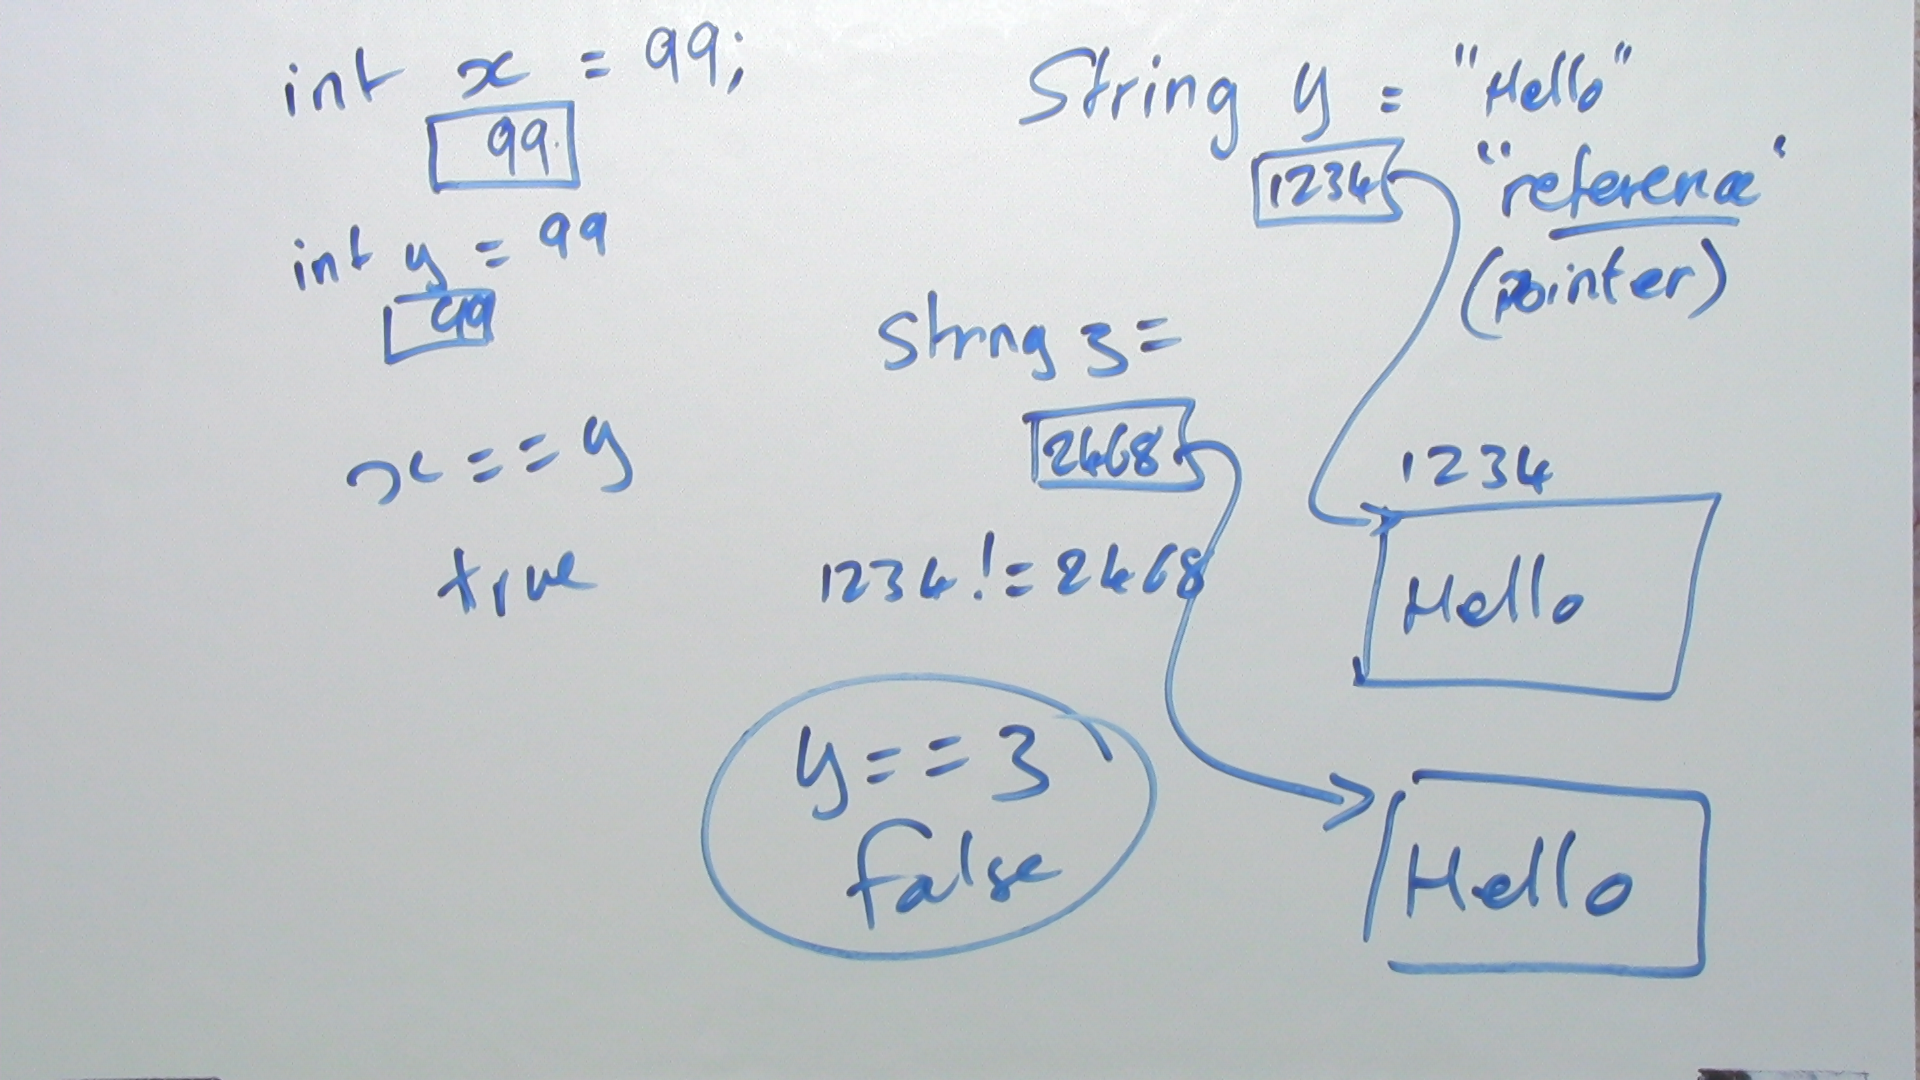 int x = 99;
99
int y = 99
99
x == y
true
String y = "Hello"
1234
"reference"
(pointer)
String z =
2468
1234 != 2468
y == z
false
1234
Hello
Hello